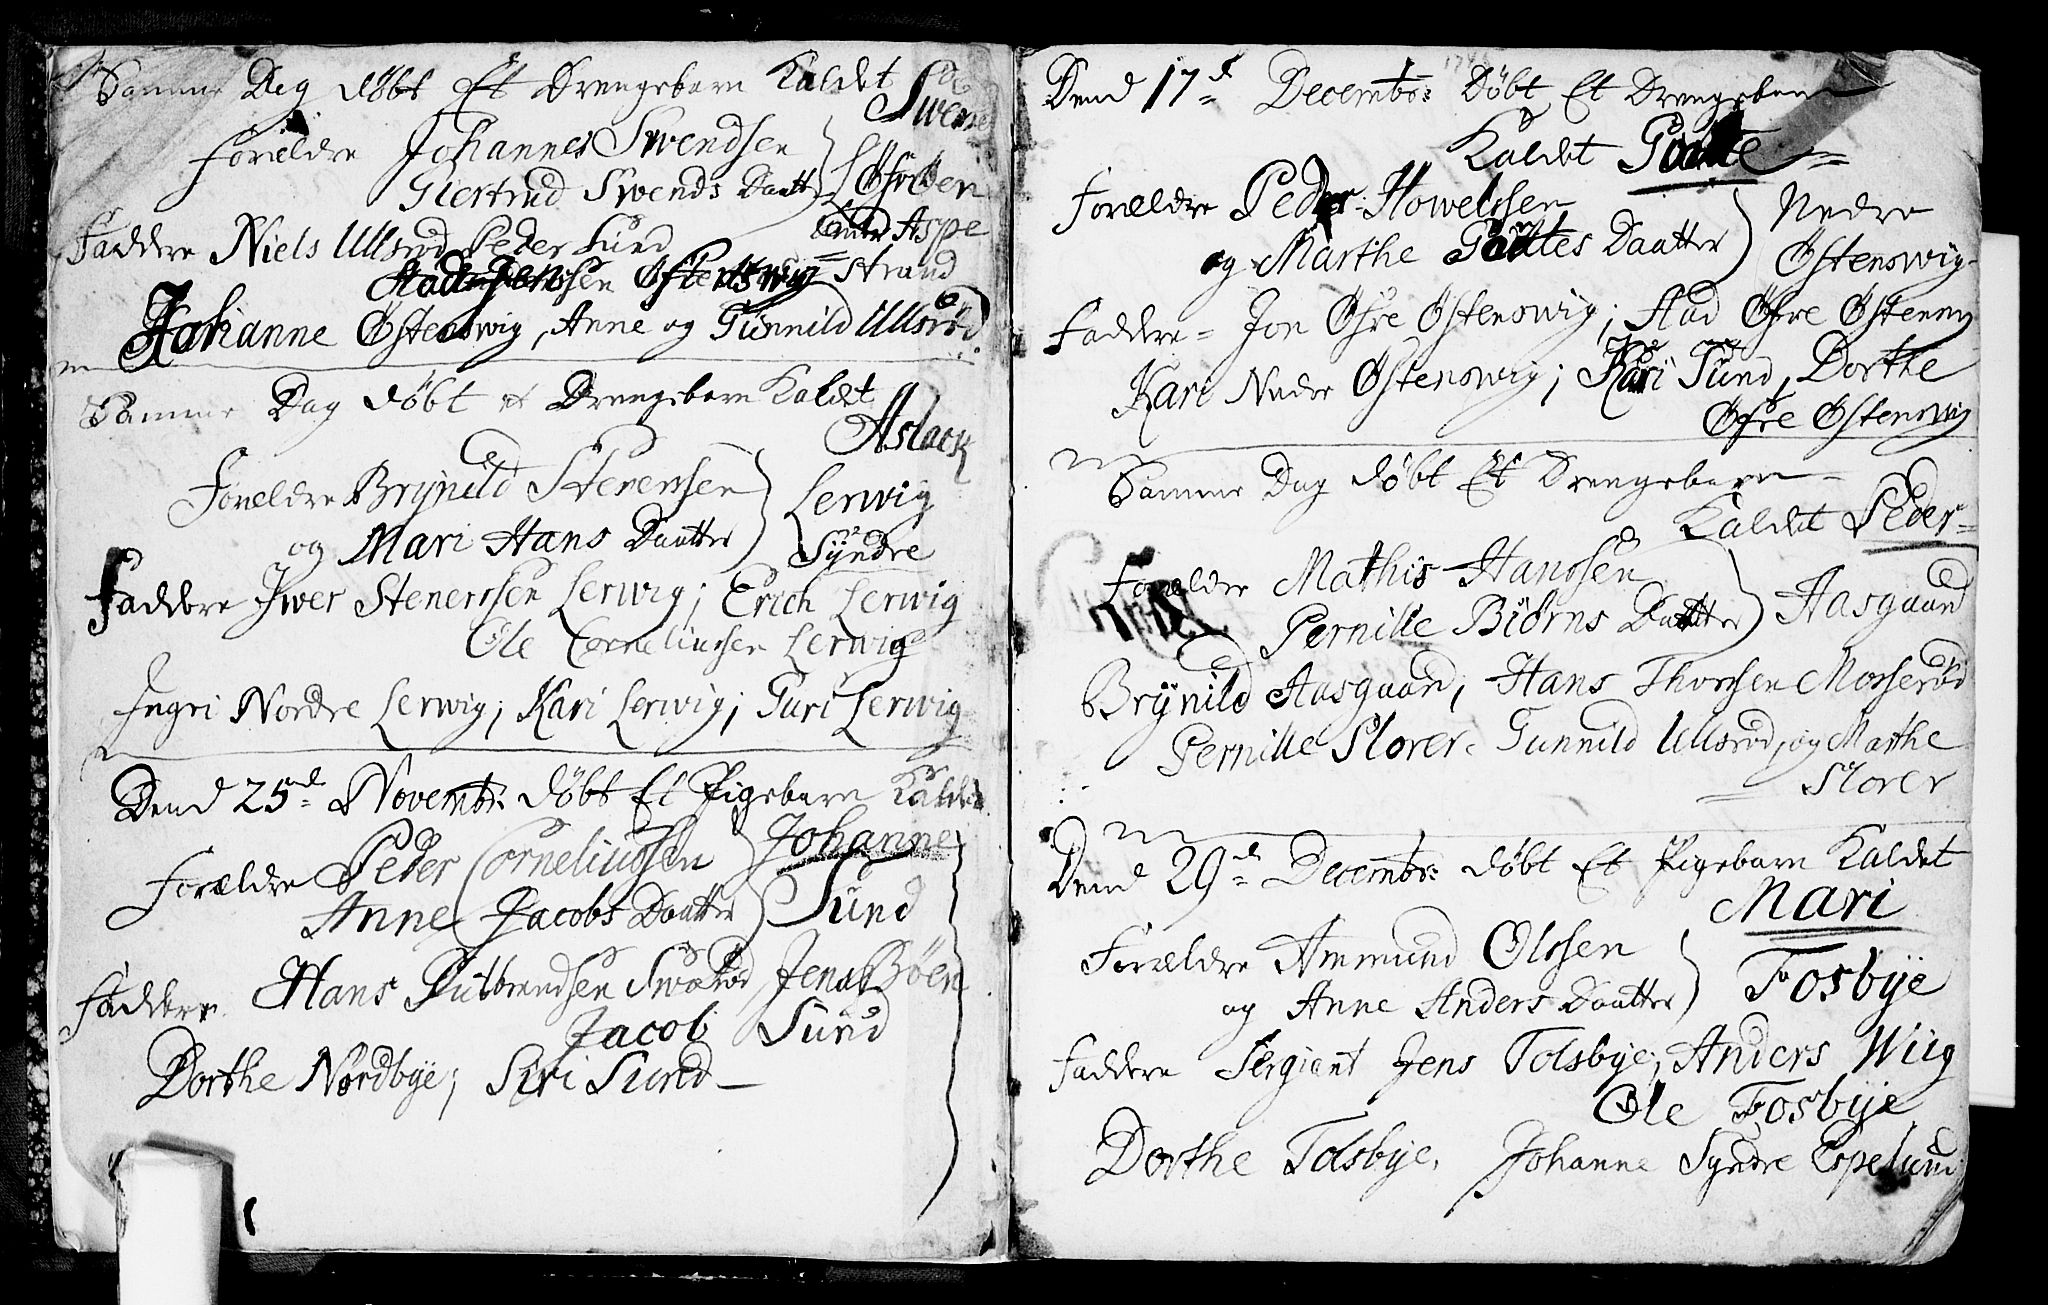 Samme Dag döbt Et Drengebarn Kaldet
Swend
Forældre Johannes Swendsen
Giertrud Swends Daatter
Faddere Niels Ullsröd Peder Sund Aspe
Östenswig = Strand
Johanne Östenswig, Anne og Gunnild Ullsröd
Samme Dag döbt et Drengebarn Kaldet
Aslack
Forældre Brÿnild Stenersen Lerwig
og Mari Hans Daatter Sÿndre
Faddere Iwer Stenerssen Lerwig; Erich Lerwig
Ole Corneliussen Lerwig
Ingri Nordre Lerwig; Kari Lerwig; Guri Lerwig
Dend 25d = Novembr: döbt Et Pigebarn Kaldet
Johanne
Forældre Peder Corneliussen
Anne Jacobs Daatter Sund
Faddere Hans Gulbrandsen Swaröd, Jens Böen
Jacob Sund
Dorthe Nordbÿe; Siri Sund
Dend 17d = Decembr: Döbt Et Drengebarn
Kaldet Goutte =
Forældre Peder Howelssen Nedre
og Marthe Gouttes Daatter Östenswig
Faddere = Jon Öfre Östenswig; Aad Öfre Östensw
Kari Nedre Östenswig; Kari Sund, Dorthe
Öfre Östenswig
Samme Dag döbt Et Drengebarn
Kaldet Peder =
Forældre Mathis Hanssen Aasgaard
Pernille Biörns Daatter
Brÿnild Aasgaard, Hans Thorssen Mosseröd
Pernille Slorer. Gunnild Ullsröd, og Marthe
Slorer
Dend 29d = Decembr: döbt Et Pigebarn Kaldet
Mari
Forældre Ammund Olssen
og Anne Anders Daatter Fosbÿe
Faddere Sergiant Jens Tolsbÿe, Anders Wiig
Ole Fosbÿe
Dorthe Tolsbÿe, Johanne Sÿndre Espelund